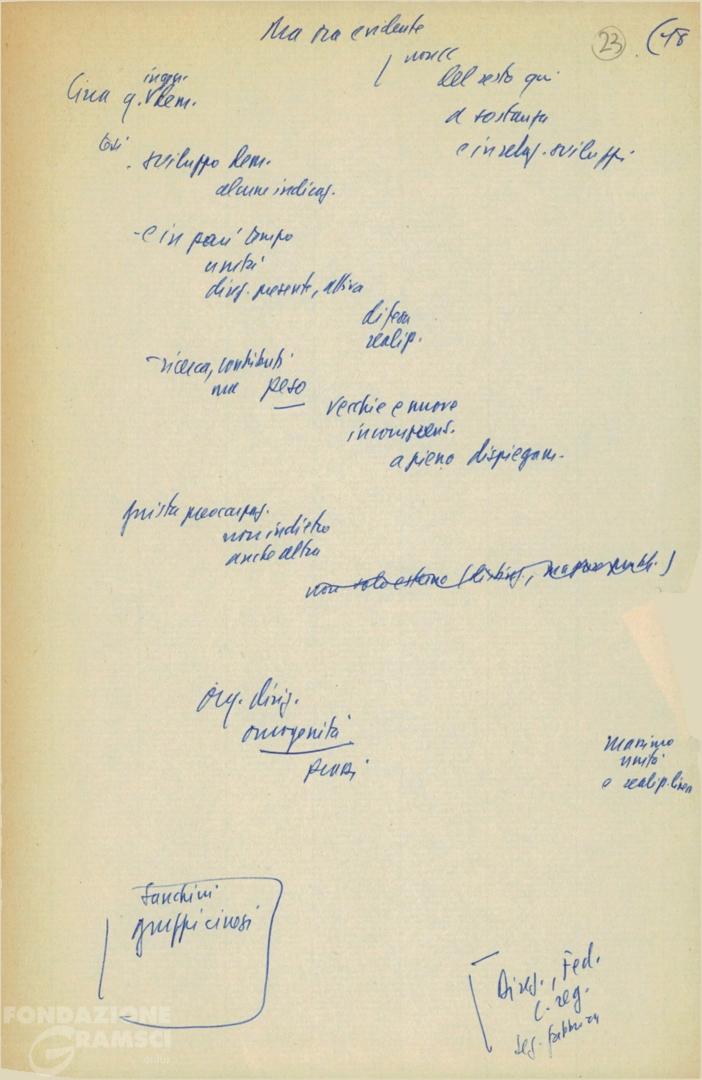 Ma ora evidente
23
(18
non c'è
Del resto qui
la sostanza
e in relaz. sviluppi
Circa q. dem.
Così
. sviluppo dem.
alcune indicaz.
- e in pari tempo
unità
direz. presente, attiva
difesa
realip.
- ricerca, contributi
ma peso
vecchie e nuove
incomprens.
a pieno dispiegam.
giusta preoccupaz.
non indietro
anche altra
non solo esterno
org. dirig.
omogenità
prassi
massimo
unità
e realip. linea
Fanchini
gruppi cinesi
Direz., Fed.
C. reg.
seg. fabbrica
FONDAZIONE
GRAMSCI